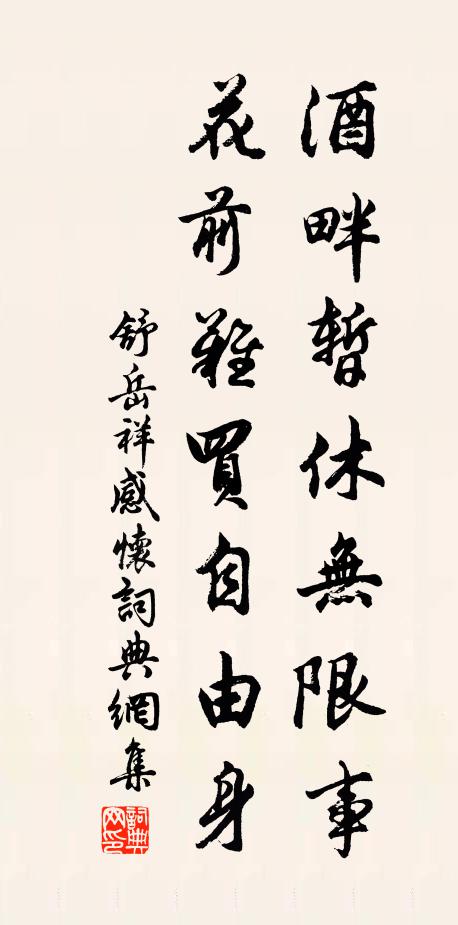 酒畔暫休無限事
花前難買自由身
舒岳祥感懷詞典網集
詞典網印